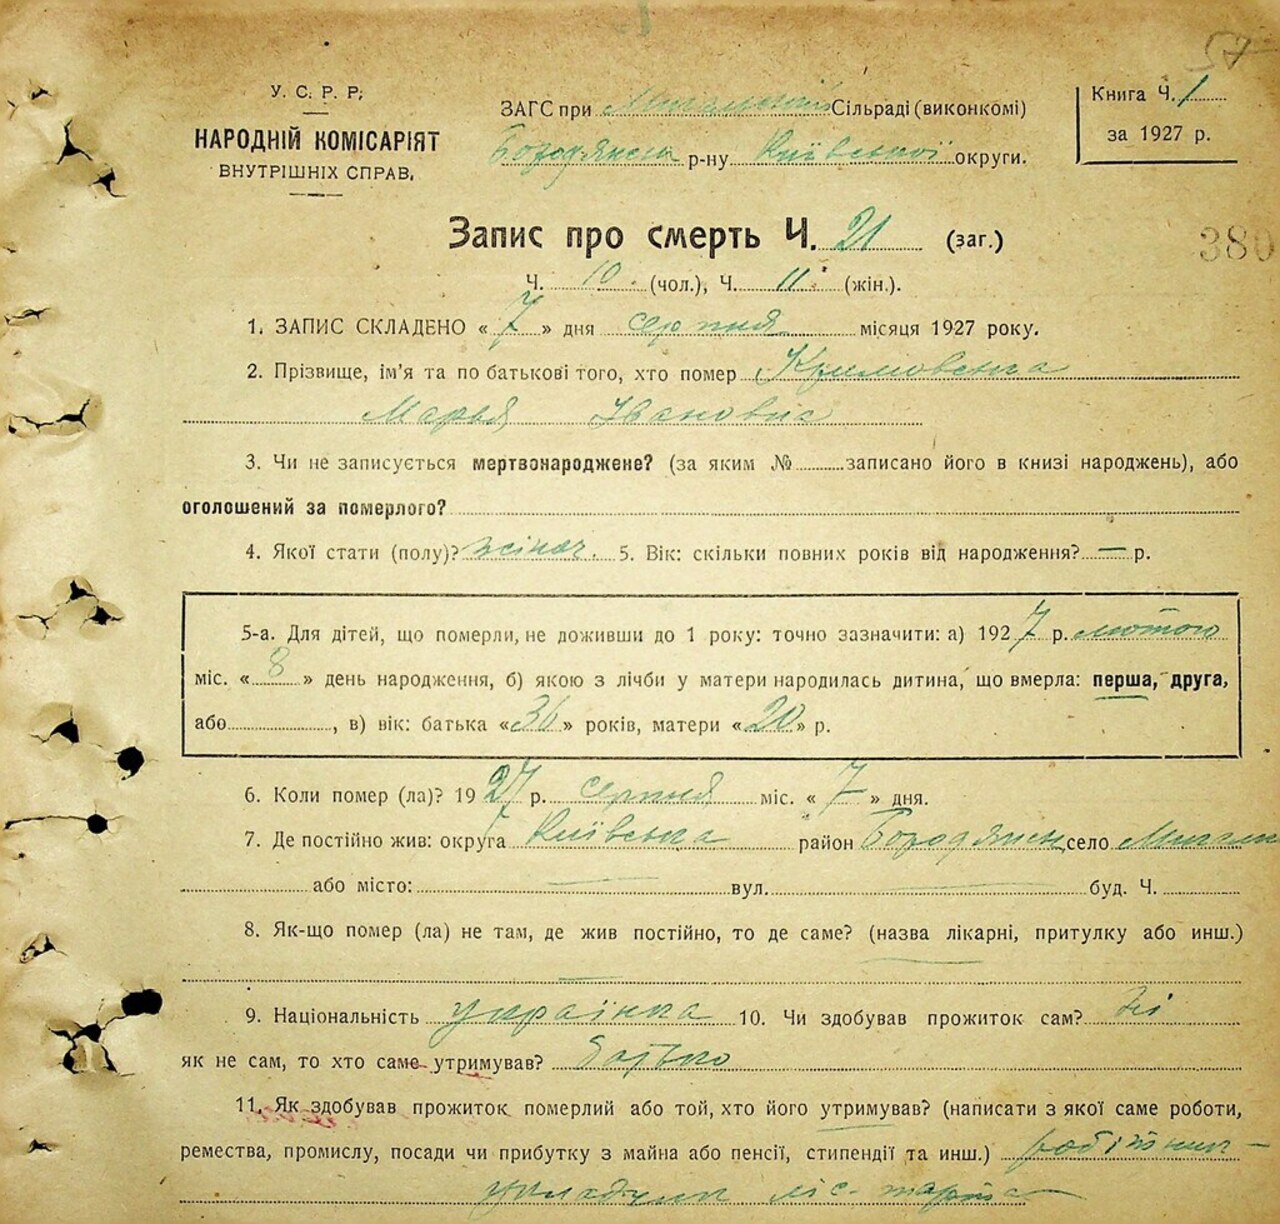 57
У. С. Р. Р.
НАРОДНІЙ КОМІСАРІЯТ
ВНУТРІШНІХ СПРАВ.
ЗАГС при Сільраді (виконкомі)
Бородянськ р-ну Київської округи.
Книга Ч. 1
за 1927 р.
Запис про смерть Ч. 21 (заг.)
380
Ч. 10 (чол.), Ч. 11 (жін.).
1. ЗАПИС СКЛАДЕНО « 7 » дня серпня місяця 1927 року.
2. Прізвище, ім'я та по батькові того, хто помер Кримовська
Марья Івановна
3. Чи не записується мертвонароджене? (за яким № записано його в книзі народжень), або
оголошений за померлого?
4. Якої стати (полу)? жіноч. 5. Вік: скільки повних років від народження? — р.
5-а. Для дітей, що померли, не доживши до 1 року: точно зазначити: а) 1927 р. лютого
міс. « 8 » день народження, б) якою з лічби у матери народилась дитина, що вмерла: перша, друга,
або , в) вік: батька «36» років, матери «20» р.
6. Коли помер (ла)? 1927 р. серпня міс. « 7 » дня.
7. Де постійно жив: округа Київська район Бородянськ село
або місто: вул. буд. Ч.
8. Як-що помер (ла) не там, де жив постійно, то де саме? (назва лікарні, притулку або инш.)
9. Національність українка 10. Чи здобував прожиток сам? Ні
як не сам, то хто саме утримував? батько
11. Як здобував прожиток померлий або той, хто його утримував? (написати з якої саме роботи,
ремества, промислу, посади чи прибутку з майна або пенсії, стипендії та инш.) робітник —